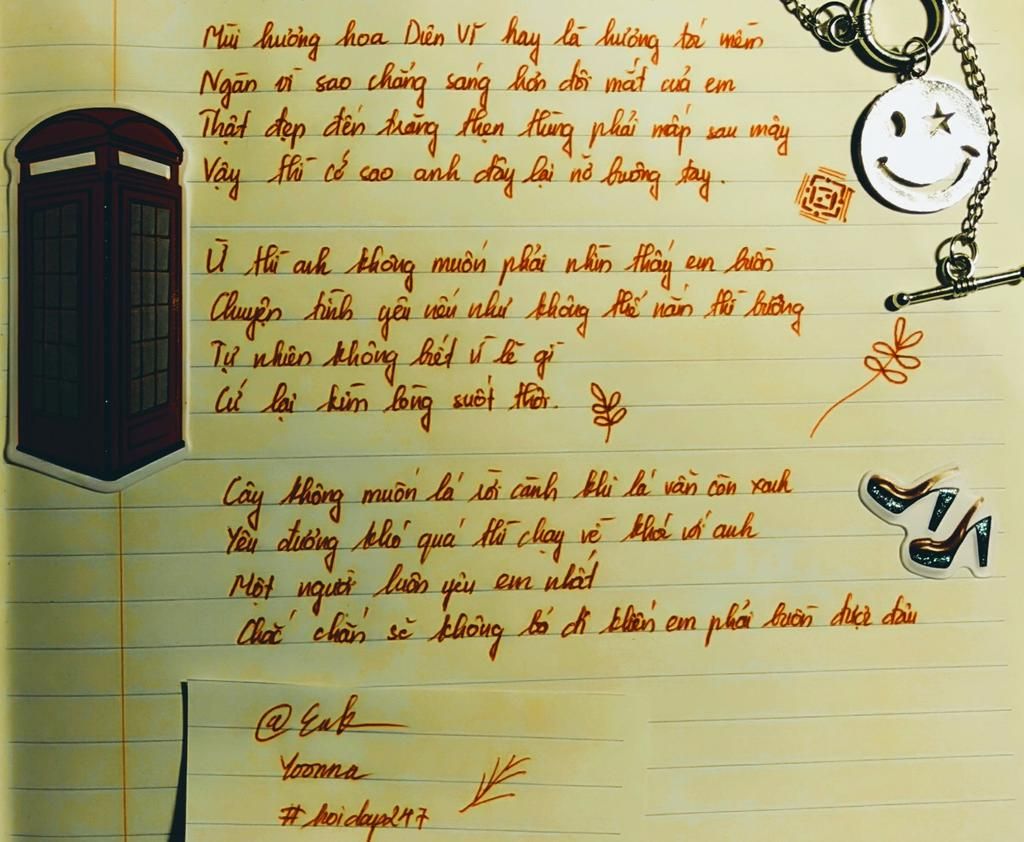 Mùi hương hoa Diên Vĩ hay là hương tóc mềm
Ngàn vì sao chẳng sáng hơn đôi mắt của em
Thật đẹp đến trăng thẹn thùng phải nấp sau mây
Vậy thì cớ sao anh đây lại nỡ buông tay.
Ừ thì anh không muốn phải nhìn thấy em buồn
Chuyện tình yêu nếu như không thể nắm thì buông
Tự nhiên không biết vì lẽ gì
Cứ lại kìm lòng suốt thôi.
Cây không muốn lá rời cành khi lá vẫn còn xanh
Yêu đương khó quá thì chạy về khóc với anh
Một người luôn yêu em nhất
Chắc chắn sẽ không bỏ đi khiến em phải buồn được đâu
@Enk
Yoonna
#hoidap247